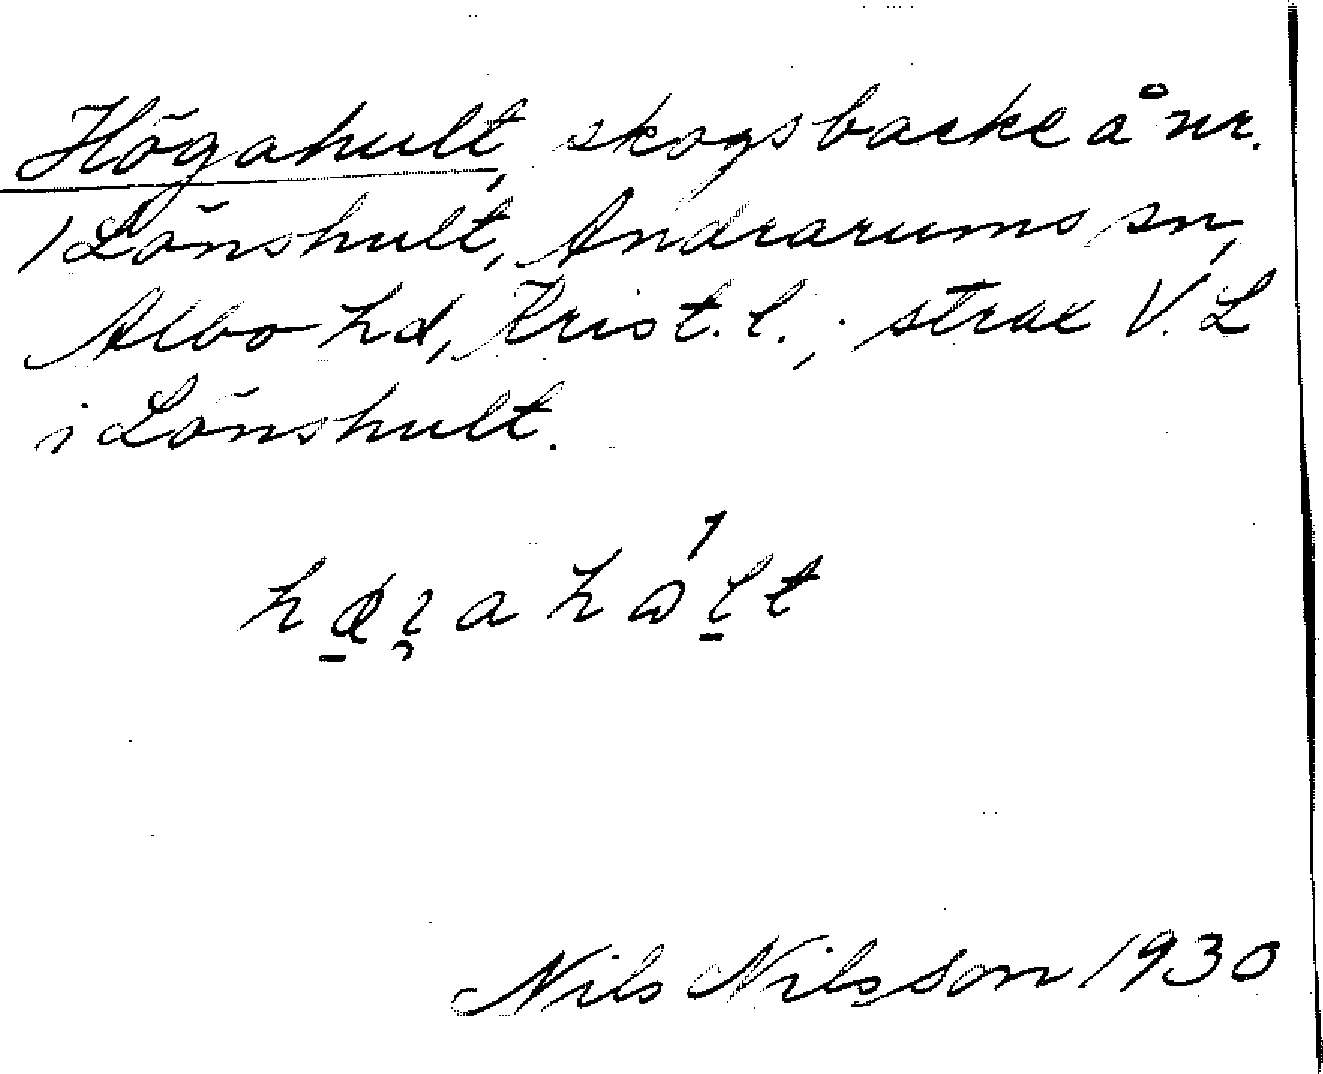 Högahult, skogsbacke å nr.
1 Lönshult, Andrarums sn,
Albo hd, Krist. l.; strax V. L
i Lönshult.
Nils Nilsson 1930